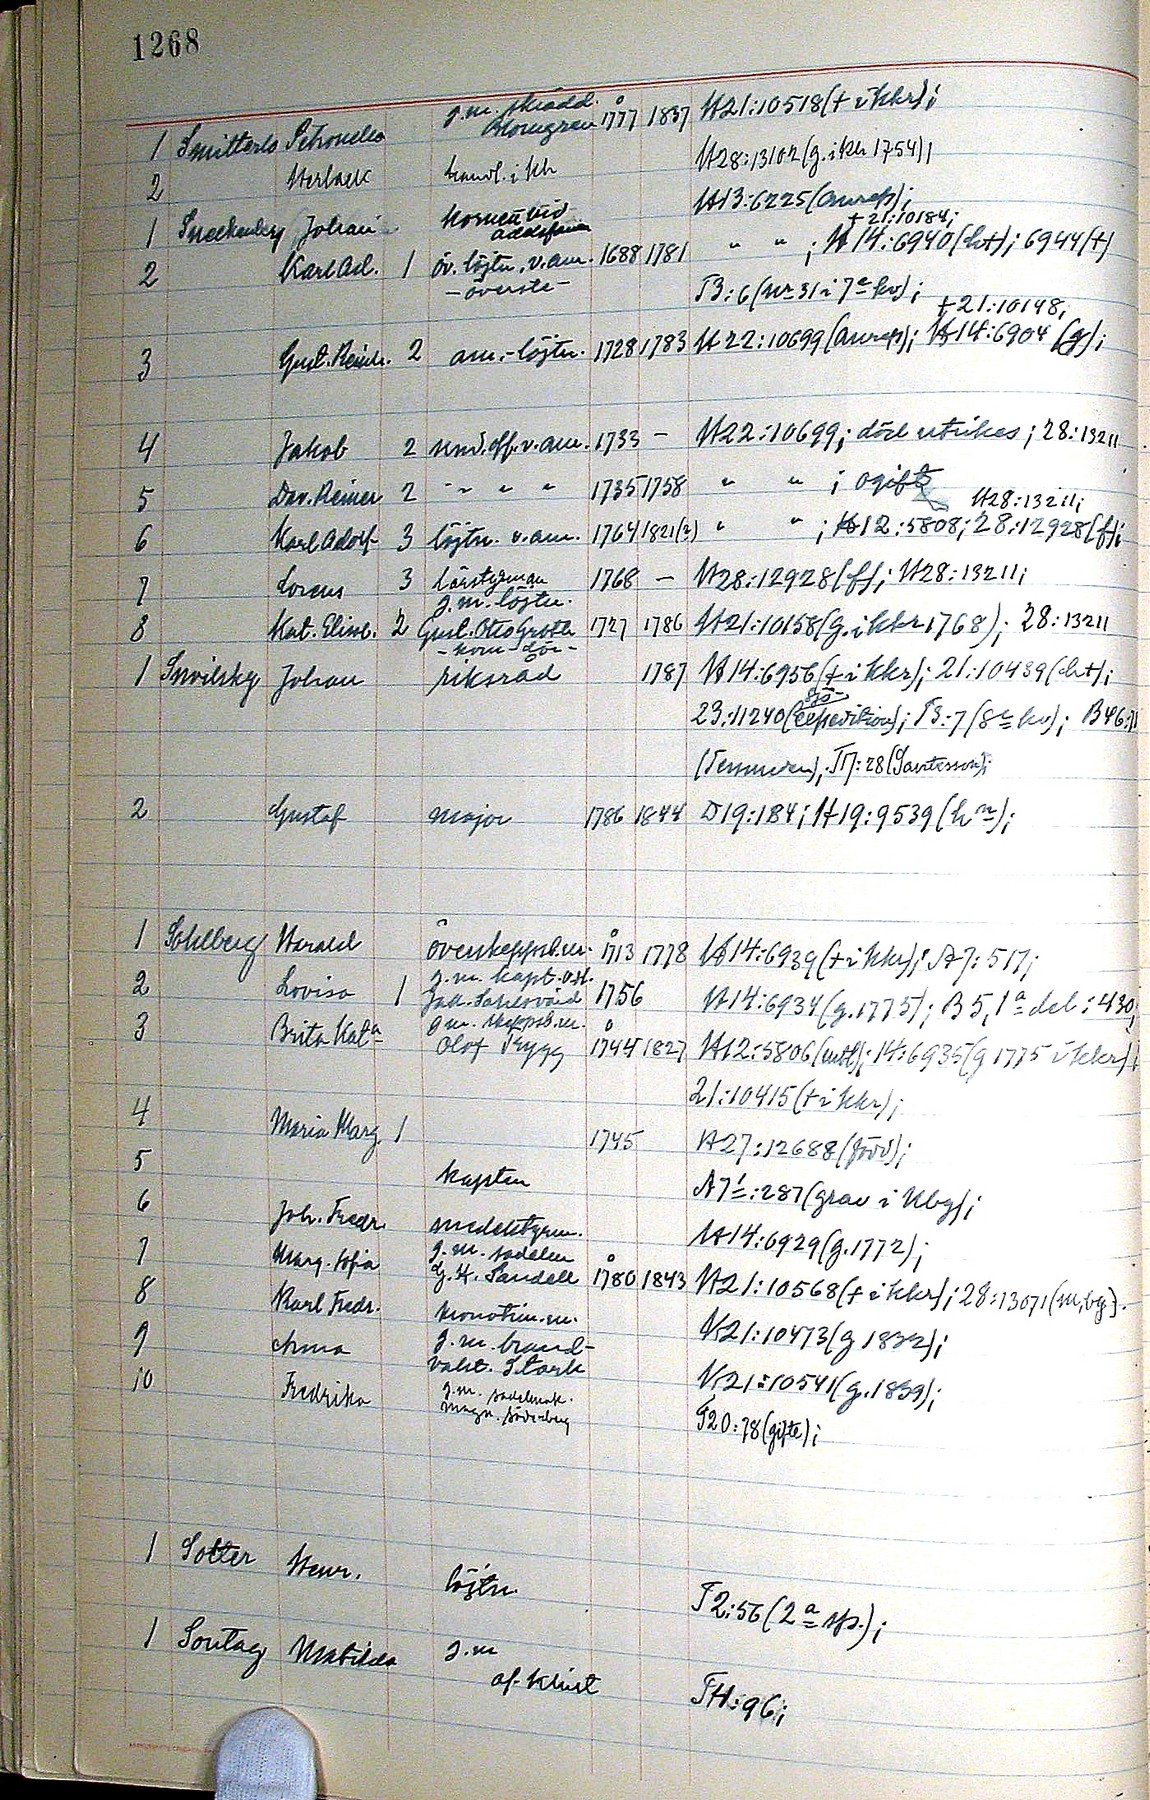 1268
g.m. skrädd.
1 Smitterlo Petronella Blomgren 1777 1837 H21:10518(+ i kkr);
2 handl. i kh H28:13102(g. i kkr 1754);
1 Johan kornett vid adelsfanan H13:6225(anrep);
+ 21:10184;
2 Karl Ad. 1 öv.löjtn. v. am. 1688 1781 " " ; H14:6940(ht); 6944(+)
- överste - T3:6(nr 31 i 7e kv);
+21:10148;
3 Gust. Reinh. 2 am.-löjtn. 1728 1783 H22:10699(anrep); H14:6904 (g);
4 Jakob 2 und.off. v. am. 1733 - H22:10699; död utrikes; 28:13211
5 Dav. Reiner 2 " " " 1735 1758 " " ; ogift H28:13211;
6 Karl Adolf 3 löjtn. v. am. 1764 1821(2) " " ; H12:5808; 28:12928(f);
7 Lorens 3 lärstyrman 1768 - H28:12928(f); H28:13211;
g.m. löjtn.
8 Kat. Elisab. 2 Gust. Otto Groth 1727 1786 H21:10158(g. i kkr 1768); 28:13211
1 Snoilsky Johan riksråd 1787 H14:6956(+ i kkr); 21:10439(ht);
23:11240(expedition); T3:7(8e kv); B46:
2 Gustaf major 1786 1844 D19:184; H19:9539(hm);
1 Sohlberg Harald överskeppsb.m. 1713 1778 H14:6939(+ i kkr); A7:517;
g.m. kapt.
2 Lovisa 1 1756 H14:6934(g.1775); B5, 1a del:430;
g.m. skeppsb.m.
3 Brita Kata Olof Rygg 1744 1827 H12:5806; 14:6935(g 1775 i kkr);
21:10415(+ i kkr);
4 Maria Marg. 1 1745 H27:12688(född);
5 kapten A7:287(grav i Kbg);
6 Joh. Fredr. medelstyrm. H14:6929(g.1772);
g.m. sadelm
7 Marg. Sofia G.H. Sandell 1780 1843 H21:10568(+ i kkr); 28:13071(m, bg).
8 Karl Fredr. H21:10473(g 1832);
g.m. brand-
9 Anna vakt. Stark H21:10541(g.1839);
g.m. sadelmak.
10 Fredrika Magn. Söderberg T20:78(gifte);
1 Sotter Henr. löjtn. T2:56(2a sp.);
1 Sontag Matilda g.m
af Klint TH:96;